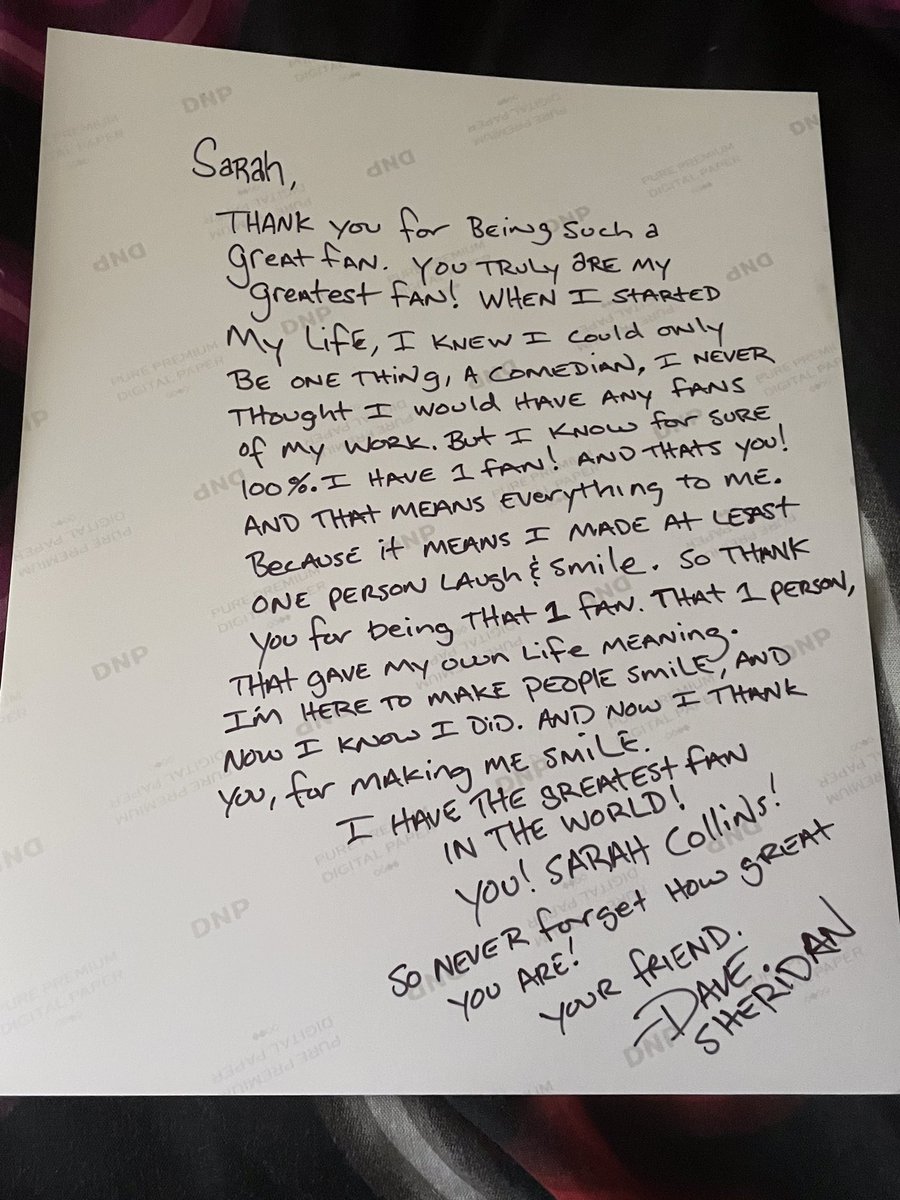 Sarah,
THANK you for Being such a
great fan. You truly are my
greatest fan! When I started
My Life, I knew I could only
Be one thing, a comedian, I never
thought I would have any fans
of my work. But I know for sure
100%. I have 1 fan! And thats you!
And that means everything to me.
Because it means I made at least
one person laugh & smile. So thank
you for being that 1 fan. That 1 person,
that gave my own life meaning.
I'm here to make people smile, and
now I know I did. And now I thank
you, for making me smile.
I have the greatest fan
in the world!
You! Sarah Collins!
So never forget how great
you are!
Your friend.
-Dave
Sheridan
DNP
PURE PREMIUM
DIGITAL PAPER